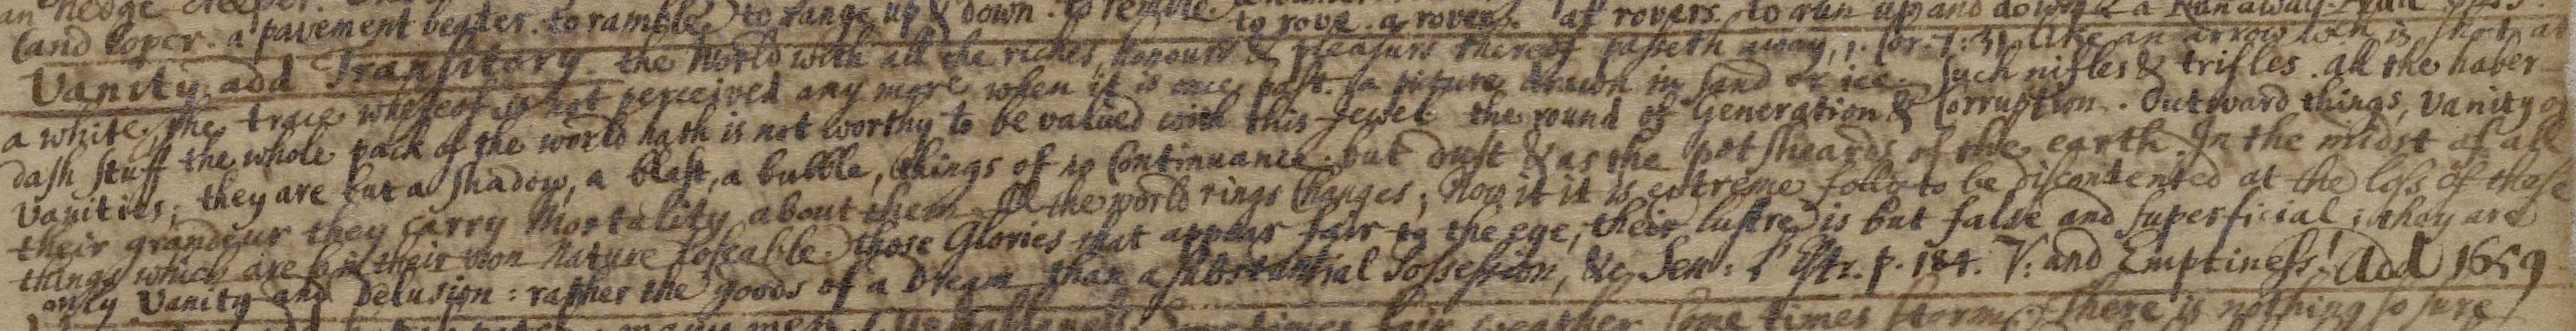 land loper. a pavement beater. to ramble. to range up & down. to rove. a rover. at rovers. to run up and down. a Runaway.
Vanity, add Transitory. the World with all the riches, honours & pleasures thereof passeth away, 1. Cor. 7. 31. like an arrow wch is shot at
a white, the trace whereof is not perceived any more when it is once past. a picture drawn in sand or ice. Such nifles & trifles. all the haber-
dash stuff the whole pack of the world hath is not worthy to be valued with this Jewel. the round of Generation & Corruption. Outward things, vanity of
vanities; they are but a shadow, a blast, a bubble, things of no Continuance. but dust & as the potsheards of the earth. In the midst of all
their grandeur they carry Mortality about them. All the world rings Changes; Now it it is extreme folly to be discontented at the loss of those
things which are in their own nature loseable. those Glories that appear fair to the eye, their lustre is but false and superficial: they are
only Vanity and Delusion: rather the goods of a Dream than a substantial Possession, &c Sen: p. 184. V: and Emptiness! Add 1659
many men some times fair weather some times storms. there is nothing so sure